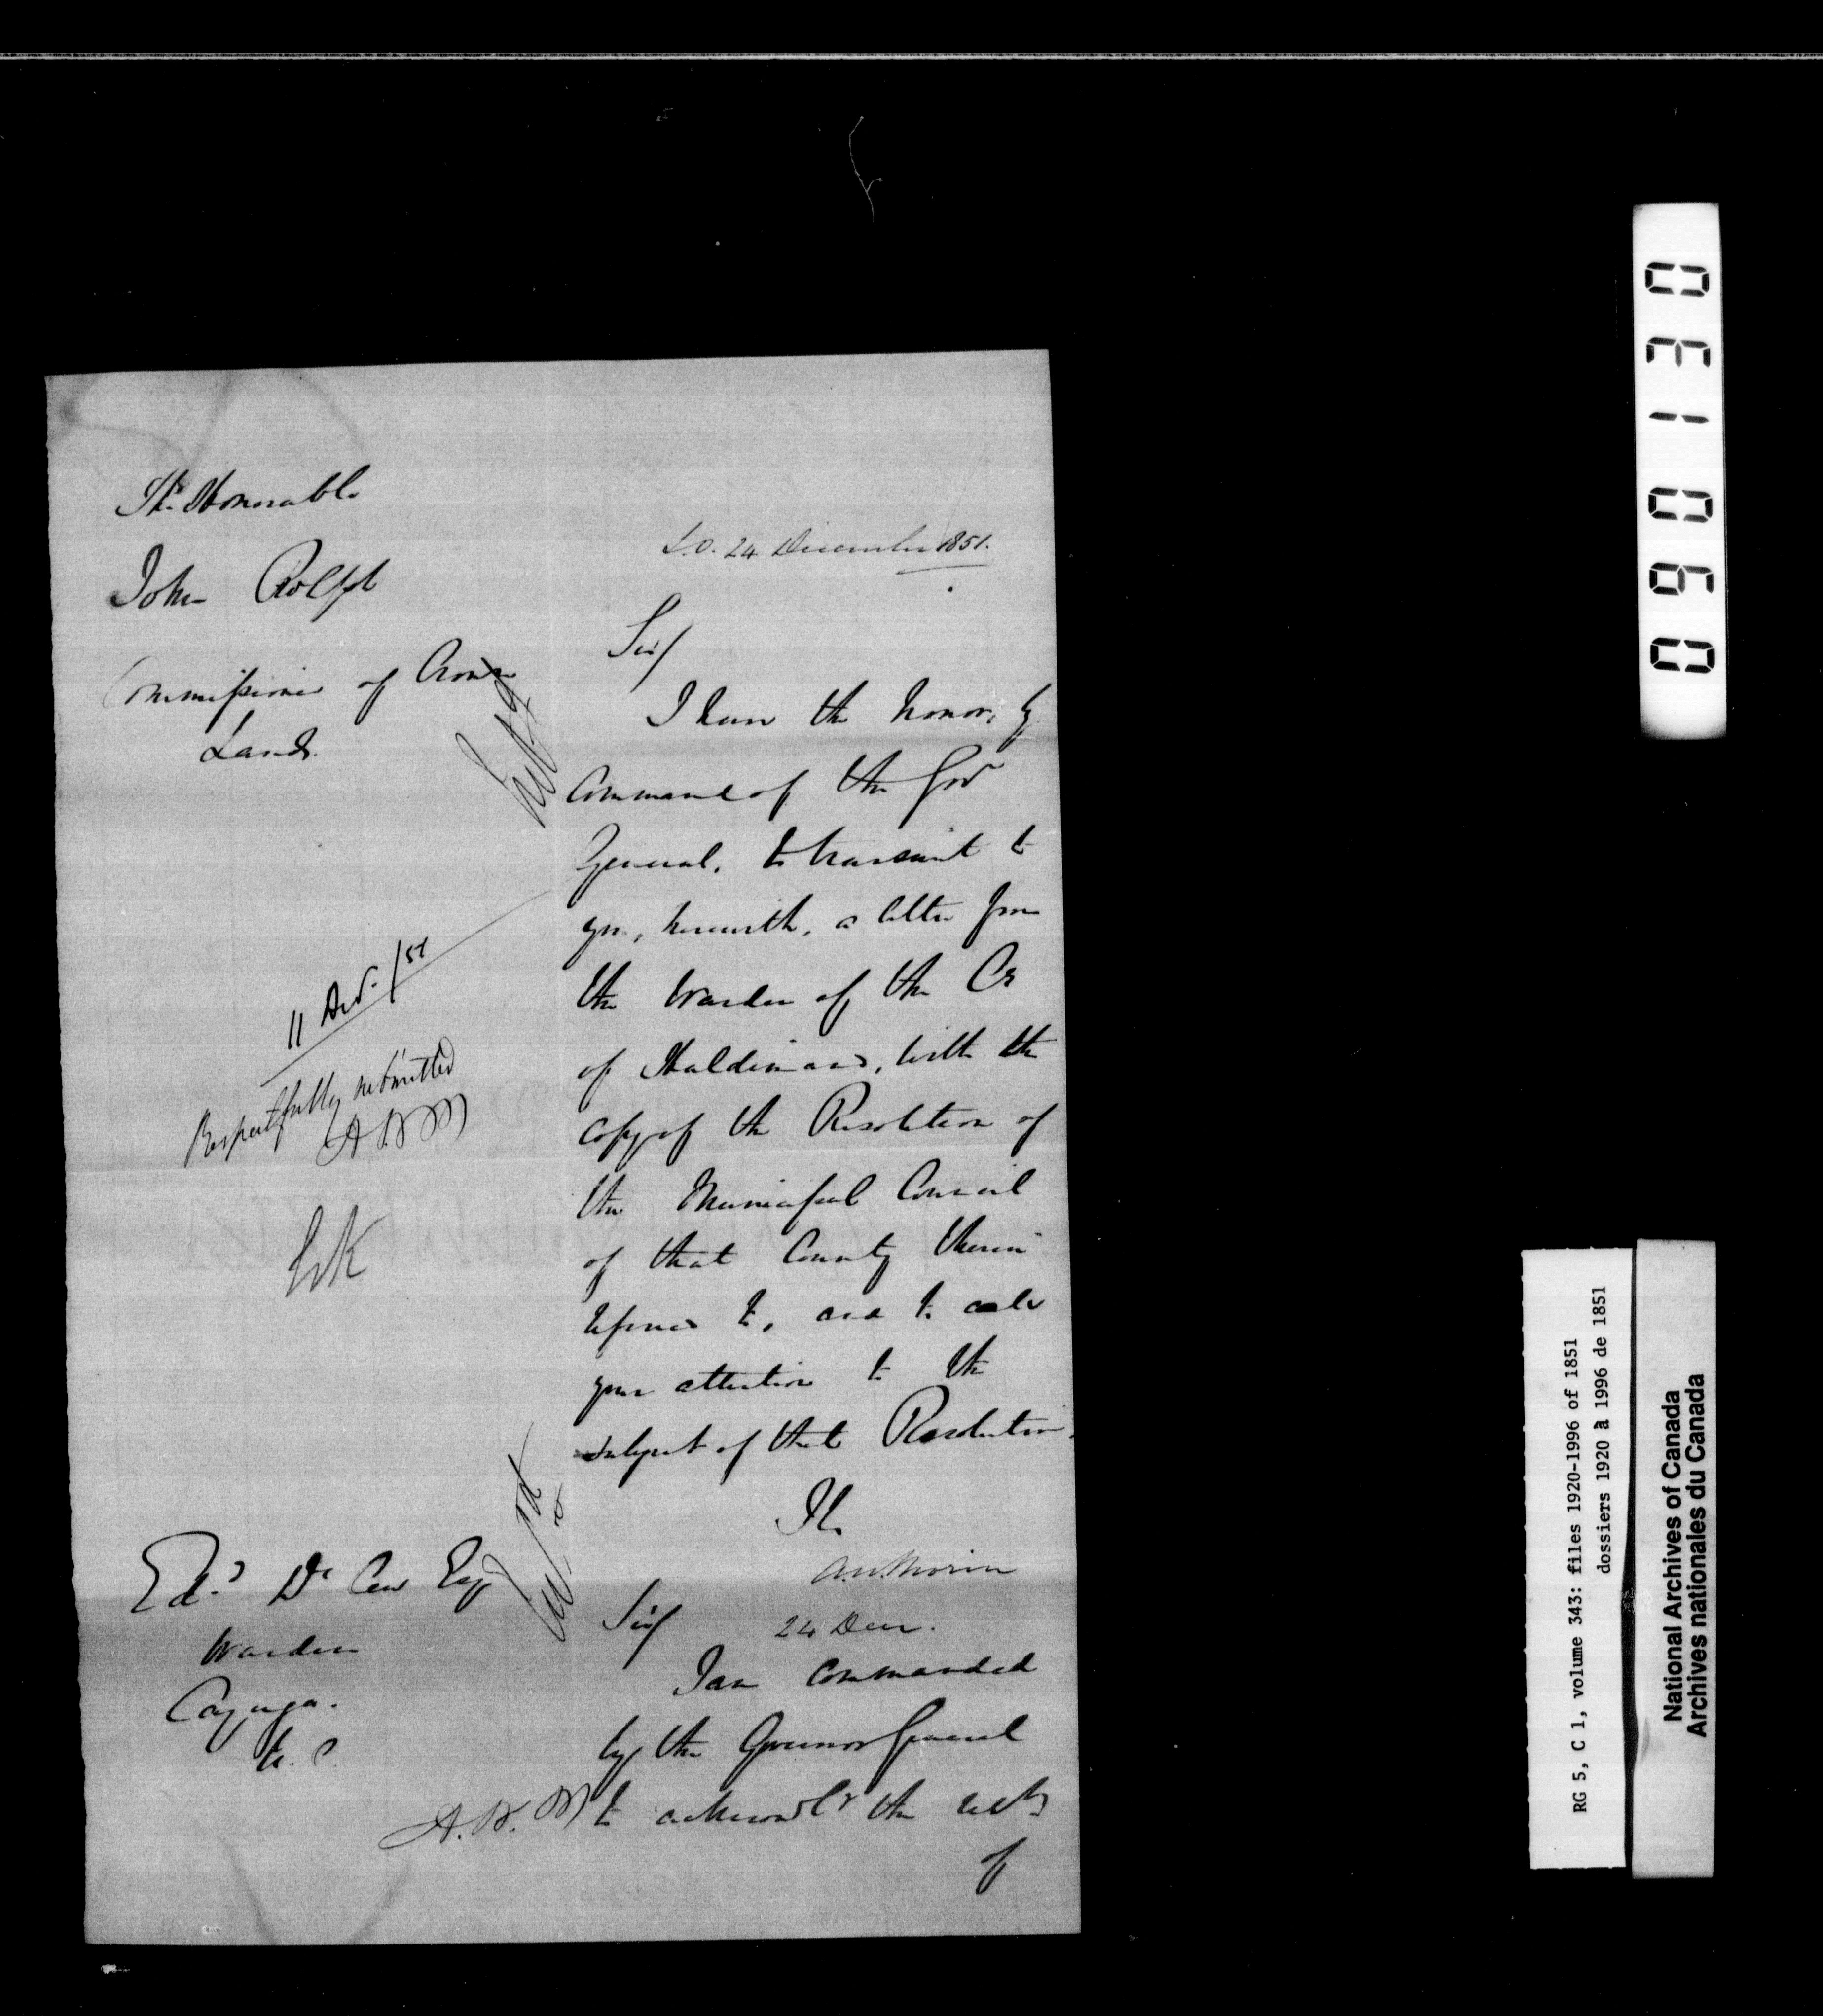 The Honorable
John Rolph
Commissioner of Crown
Lands.
S.O. 24 December 1851.
Sir/
I have the honor, by
Command of the Govr
General, to transmit to
you, herewith, a letter from
the Warden of the Co
of Haldimand, with the
copy of the Resolution of
the Municipal Council
of that County therein
referred to, and to call
your attention to the
subject of that Resolution.
I h.
A.N. Morin
24 Decr.
11 Decr. /51
Respectfully submitted
A.N.M
Edd. De Cew Esqr
Warden
Cayuga.
U. C.
Sir/
I am commanded
by the Governor General
to acknowle the rect
of
A.N.M
031060
RG 5, C 1, volume 343: files 1920-1996 of 1851
dossiers 1920 à 1996 de 1851
National Archives of Canada
Archives nationales du Canada